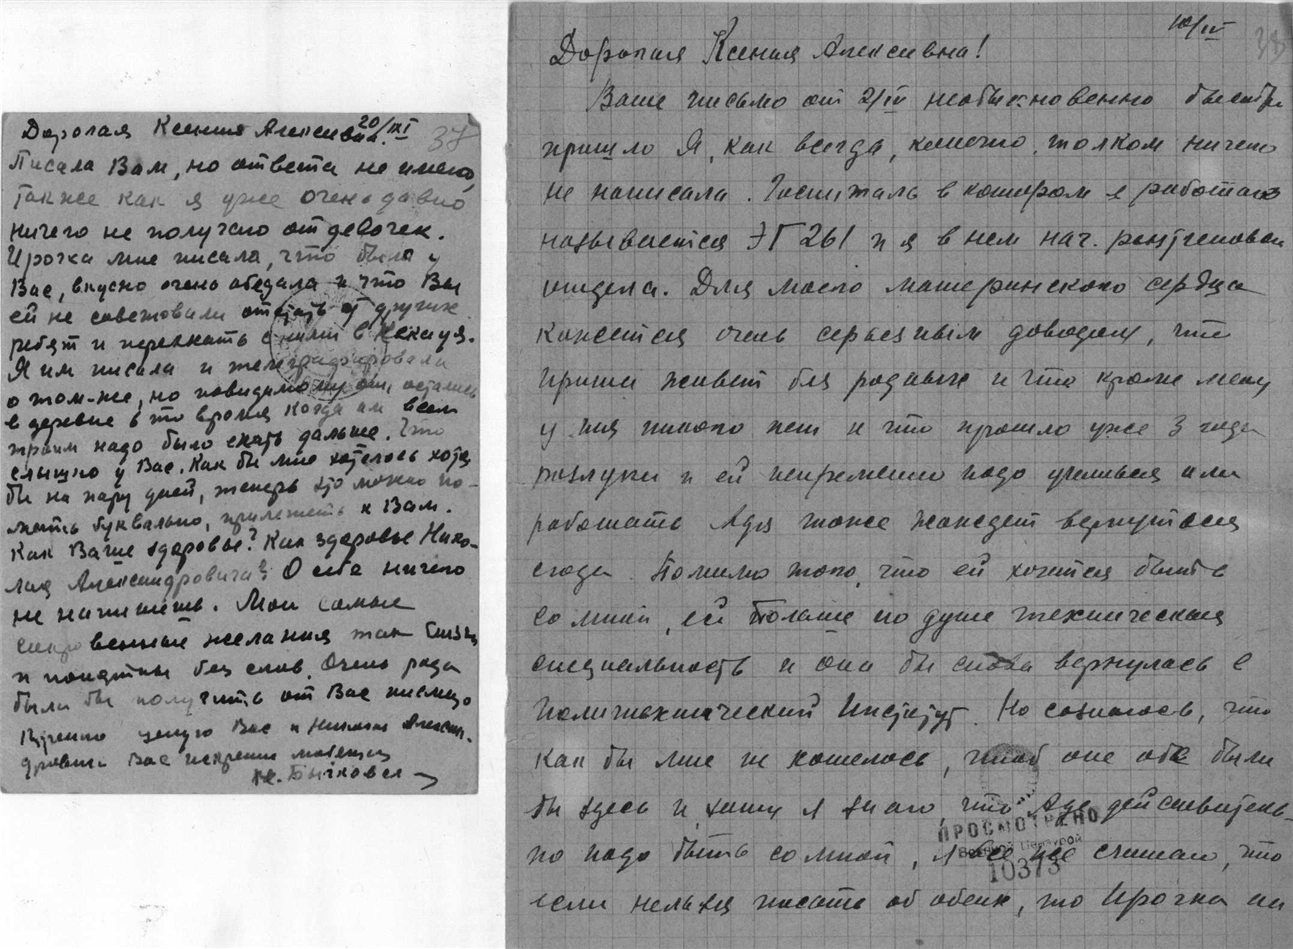 20/XI
37
Дорогая Ксения Алексеевна.
Писала Вам, но ответа не имею,
также как я уже очень давно
ничего не получаю от девочек.
Ирочка мне писала, что была у
Вас, вкусно очень обедала и что Вы
ей не советовали отстать от других
ребят и переехать с ними в
Я им писала и телеграфировала
о том-же, но повидимому они остались
в деревне в то время когда им всем
троим надо было ехать дальше. Что
слышно у Вас. Как бы мне хотелось хотя
бы на пару дней, теперь это можно по-
нять буквально, прилететь к Вам.
Как Ваше здоровье? Как здоровье Нико-
лая Александровича? О себе ничего
не напишешь. Мои самые
сокровенные желания так близки
и понятны без слов. Очень рада
была бы получить от Вас письмо
Крепко целую Вас и Николая Алексан-
дровича Вас искренне любящая
10/IV
38
Дорогая Ксения Алексеевна!
Ваше письмо от 2/IV необыкновенно быстро
пришло Я, как всегда, конечно, толком ничего
не написала. Госпиталь в котором я работаю
называется ЭГ 261 и я в нем нач. рентгеновск
отдела. Для моего материнского сердца
кажется очень серьезным доводом, что
Ириша живет без родных и что кроме меня
у нея никого нет и что прошло уже 3 года
разлуки и ей непременно надо учиться или
работать Адя тоже жаждет вернуться
сюда. Помимо того, что ей хочется быть
со мной, ей больше по душе техническая
специальность и она бы снова вернулась в
Политехнический Институт. Но сознаюсь, что
как бы мне не хотелось, чтоб оне обе были
бы здесь и хотя я знаю, что Аде действитель-
но надо быть со мной, я все же считаю, что
если нельзя писать об обеих, то Ирочка
ПРОСМОТРЕНО
Военной Цензурой
10373